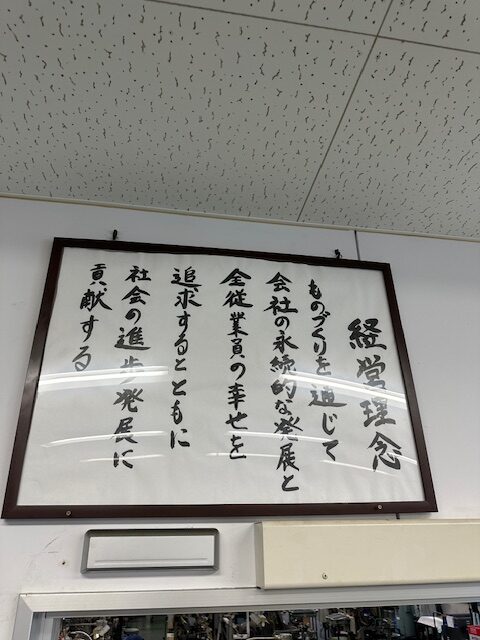 経営理念
ものづくりを通じて
会社の永続的な発展と
全従業員の幸せを
追求するとともに
社会の進歩発展に
貢献する